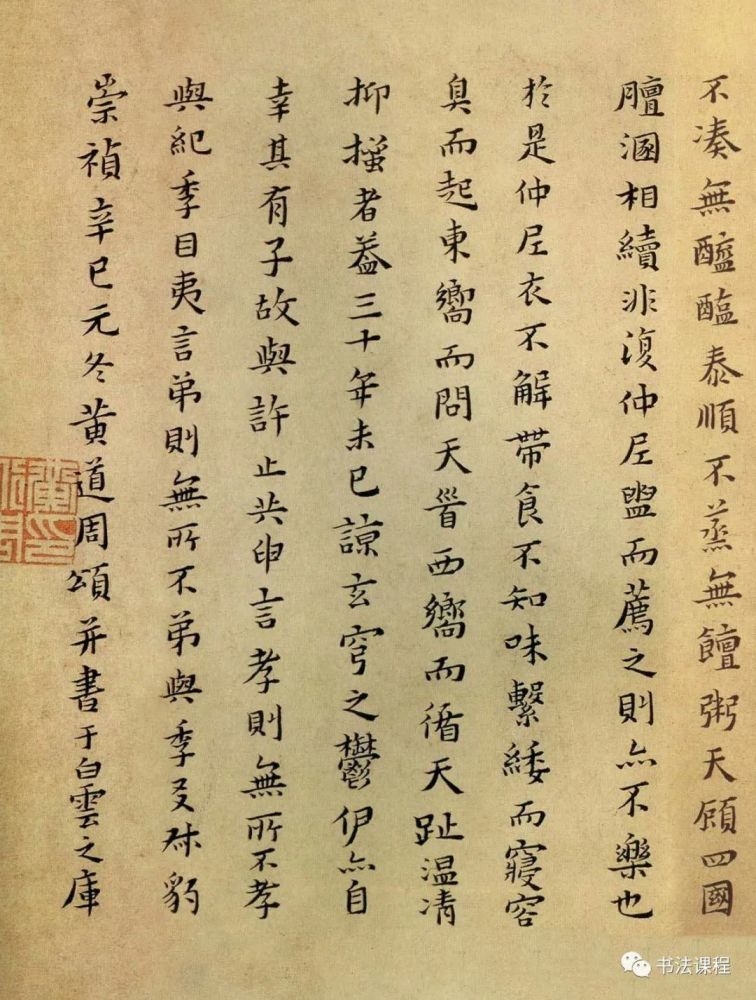 不凑無醯醢泰順不蒸無饘粥天顧四國
膻溷相續非復仲尼盥而薦之則亦不樂也
於是仲尼衣不解帶食不知味繫緌而寢容
臭而起東嚮而問天晉西嚮而循天趾温凊
抑搔者葢三十年未已諒玄穹之鬱伊亦自
幸其有子故與許止共申言孝則無所不孝
與紀季目夷言弟則無所不弟與季友叔豹
崇禎辛巳元冬黄道周頌并書于白雲之庫
书法课程